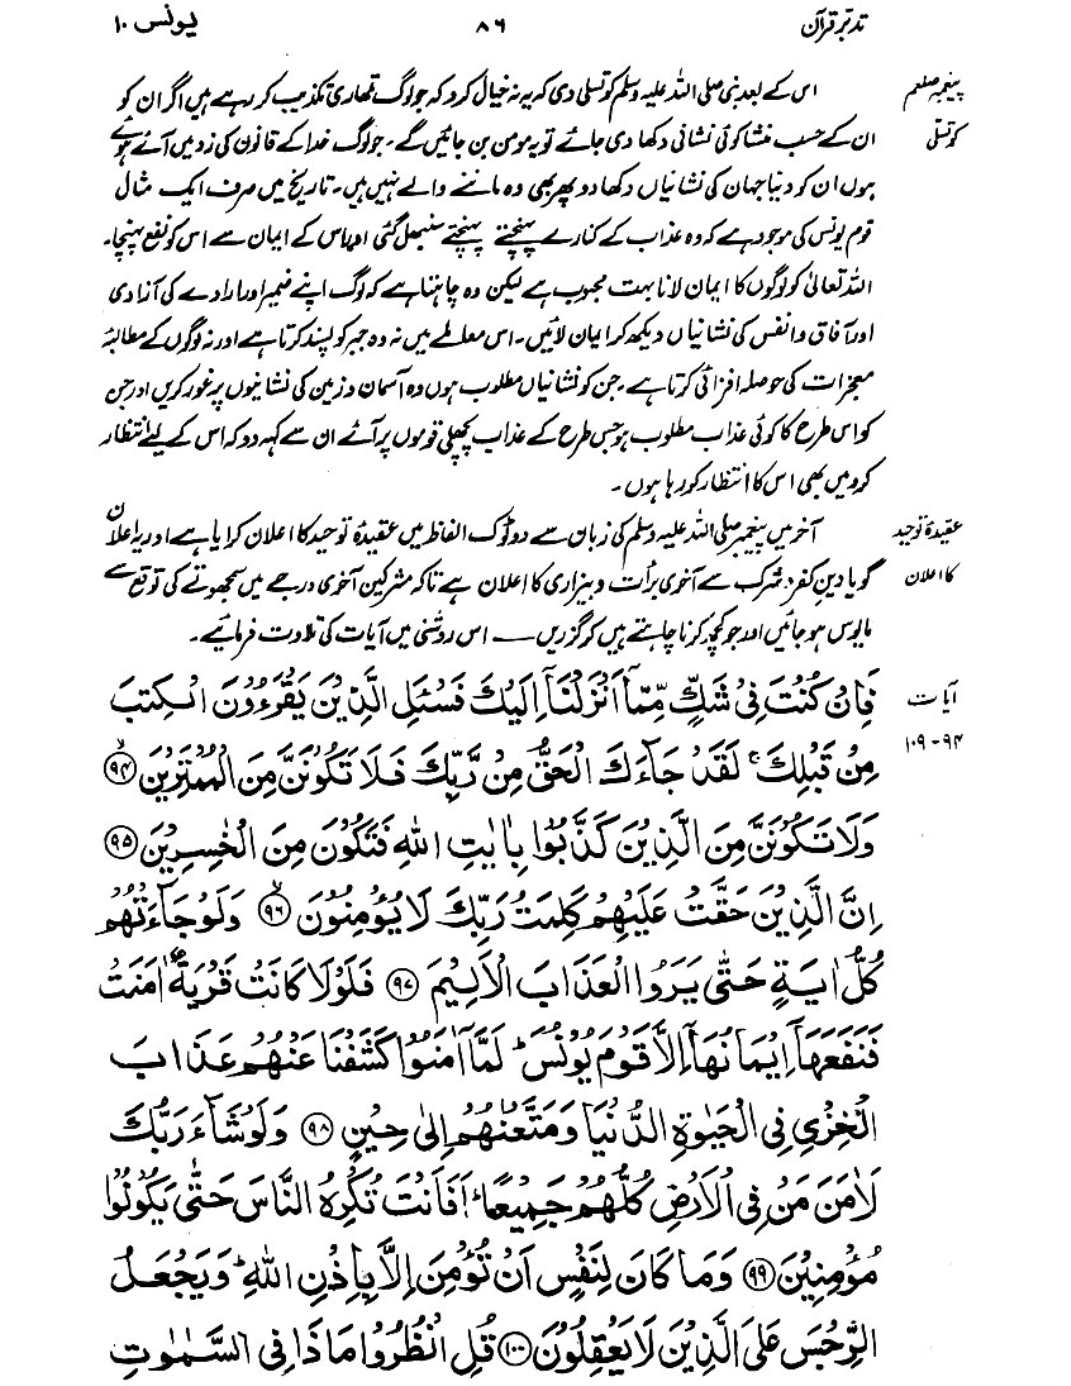 تدبّر قرآن ۸۶ یونس ۱۰
پیغمبر صلعم
کو تسلی
اس کے بعد نبی صلی اللہ علیہ وسلم کو تسلی دی کہ یہ نہ خیال کرو کہ جو لوگ تمھاری تکذیب کر رہے ہیں اگر ان کو
ان کے حسب منشا کوئی نشانی دکھا دی جائے تو یہ مومن بن جائیں گے۔ جو لوگ خدا کے قانون کی زد میں آئے ہوئے
ہوں ان کو دنیا جہان کی نشانیاں دکھا دو پھر بھی وہ ماننے والے نہیں ہیں۔ تاریخ میں صرف ایک مثال
قوم یونس کی موجود ہے کہ وہ عذاب کے کنارے پہنچتے پہنچتے سنبھل گئی اور اس کے ایمان سے اس کو نفع پہنچا۔
اللہ تعالیٰ کو لوگوں کا ایمان لانا بہت محبوب ہے لیکن وہ چاہتا ہے کہ لوگ اپنے ضمیر اور ارادے کی آزادی
اور آفاق و انفس کی نشانیاں دیکھ کر ایمان لائیں۔ اس معاملے میں نہ وہ جبر کو پسند کرتا ہے اور نہ لوگوں کے مطالبۂ
معجزات کی حوصلہ افزائی کرتا ہے۔ جن کو نشانیاں مطلوب ہوں وہ آسمان و زمین کی نشانیوں پر غور کریں اور جن
کو اس طرح کا کوئی عذاب مطلوب ہو جس طرح کے عذاب پچھلی قوموں پر آئے ان سے کہہ دو کہ اس کے لیے انتظار
کرو میں بھی اس کا انتظار کر رہا ہوں۔
عقیدۂ توحید
کا اعلان
آخر میں پیغمبر صلی اللہ علیہ وسلم کی زبان سے دو ٹوک الفاظ میں عقیدۂ توحید کا اعلان کرایا ہے اور یہ اعلان
گویا دینِ کفر و شرک سے آخری برأت و بیزاری کا اعلان ہے تاکہ مشرکین آخری درجے میں سمجھوتے کی توقع سے
مایوس ہو جائیں اور جو کچھ کرنا چاہتے ہیں کر گزریں — اس روشنی میں آیات کی تلاوت فرمائیے۔
آیات
۹۴-۱۰۹
فَاِنْ كُنْتَ فِيْ شَكٍّ مِّمَّآ اَنْزَلْنَآ اِلَيْكَ فَسْـَٔلِ الَّذِيْنَ يَقْرَءُوْنَ الْكِتٰبَ
مِنْ قَبْلِكَ ۚ لَقَدْ جَآءَكَ الْحَقُّ مِنْ رَّبِّكَ فَلَا تَكُوْنَنَّ مِنَ الْمُمْتَرِيْنَ ﴿۹۴﴾ ۙ
وَلَا تَكُوْنَنَّ مِنَ الَّذِيْنَ كَذَّبُوْا بِاٰيٰتِ اللّٰهِ فَتَكُوْنَ مِنَ الْخٰسِرِيْنَ ﴿۹۵﴾
اِنَّ الَّذِيْنَ حَقَّتْ عَلَيْهِمْ كَلِمَتُ رَبِّكَ لَا يُؤْمِنُوْنَ ﴿۹۶﴾ ۙ وَلَوْ جَآءَتْهُمْ
كُلُّ اٰيَةٍ حَتّٰى يَرَوُا الْعَذَابَ الْاَلِيْمَ ﴿۹۷﴾ فَلَوْلَا كَانَتْ قَرْيَةٌ اٰمَنَتْ
فَنَفَعَهَآ اِيْمَانُهَآ اِلَّا قَوْمَ يُوْنُسَ ؕ لَمَّآ اٰمَنُوْا كَشَفْنَا عَنْهُمْ عَذَابَ
الْخِزْيِ فِي الْحَيٰوةِ الدُّنْيَا وَمَتَّعْنٰهُمْ اِلٰى حِيْنٍ ﴿۹۸﴾ وَلَوْ شَآءَ رَبُّكَ
لَاٰمَنَ مَنْ فِي الْاَرْضِ كُلُّهُمْ جَمِيْعًا ؕ اَفَاَنْتَ تُكْرِهُ النَّاسَ حَتّٰى يَكُوْنُوْا
مُؤْمِنِيْنَ ﴿۹۹﴾ وَمَا كَانَ لِنَفْسٍ اَنْ تُؤْمِنَ اِلَّا بِاِذْنِ اللّٰهِ ؕ وَيَجْعَلُ
الرِّجْسَ عَلَى الَّذِيْنَ لَا يَعْقِلُوْنَ ﴿۱۰۰﴾ قُلِ انْظُرُوْا مَاذَا فِي السَّمٰوٰتِ